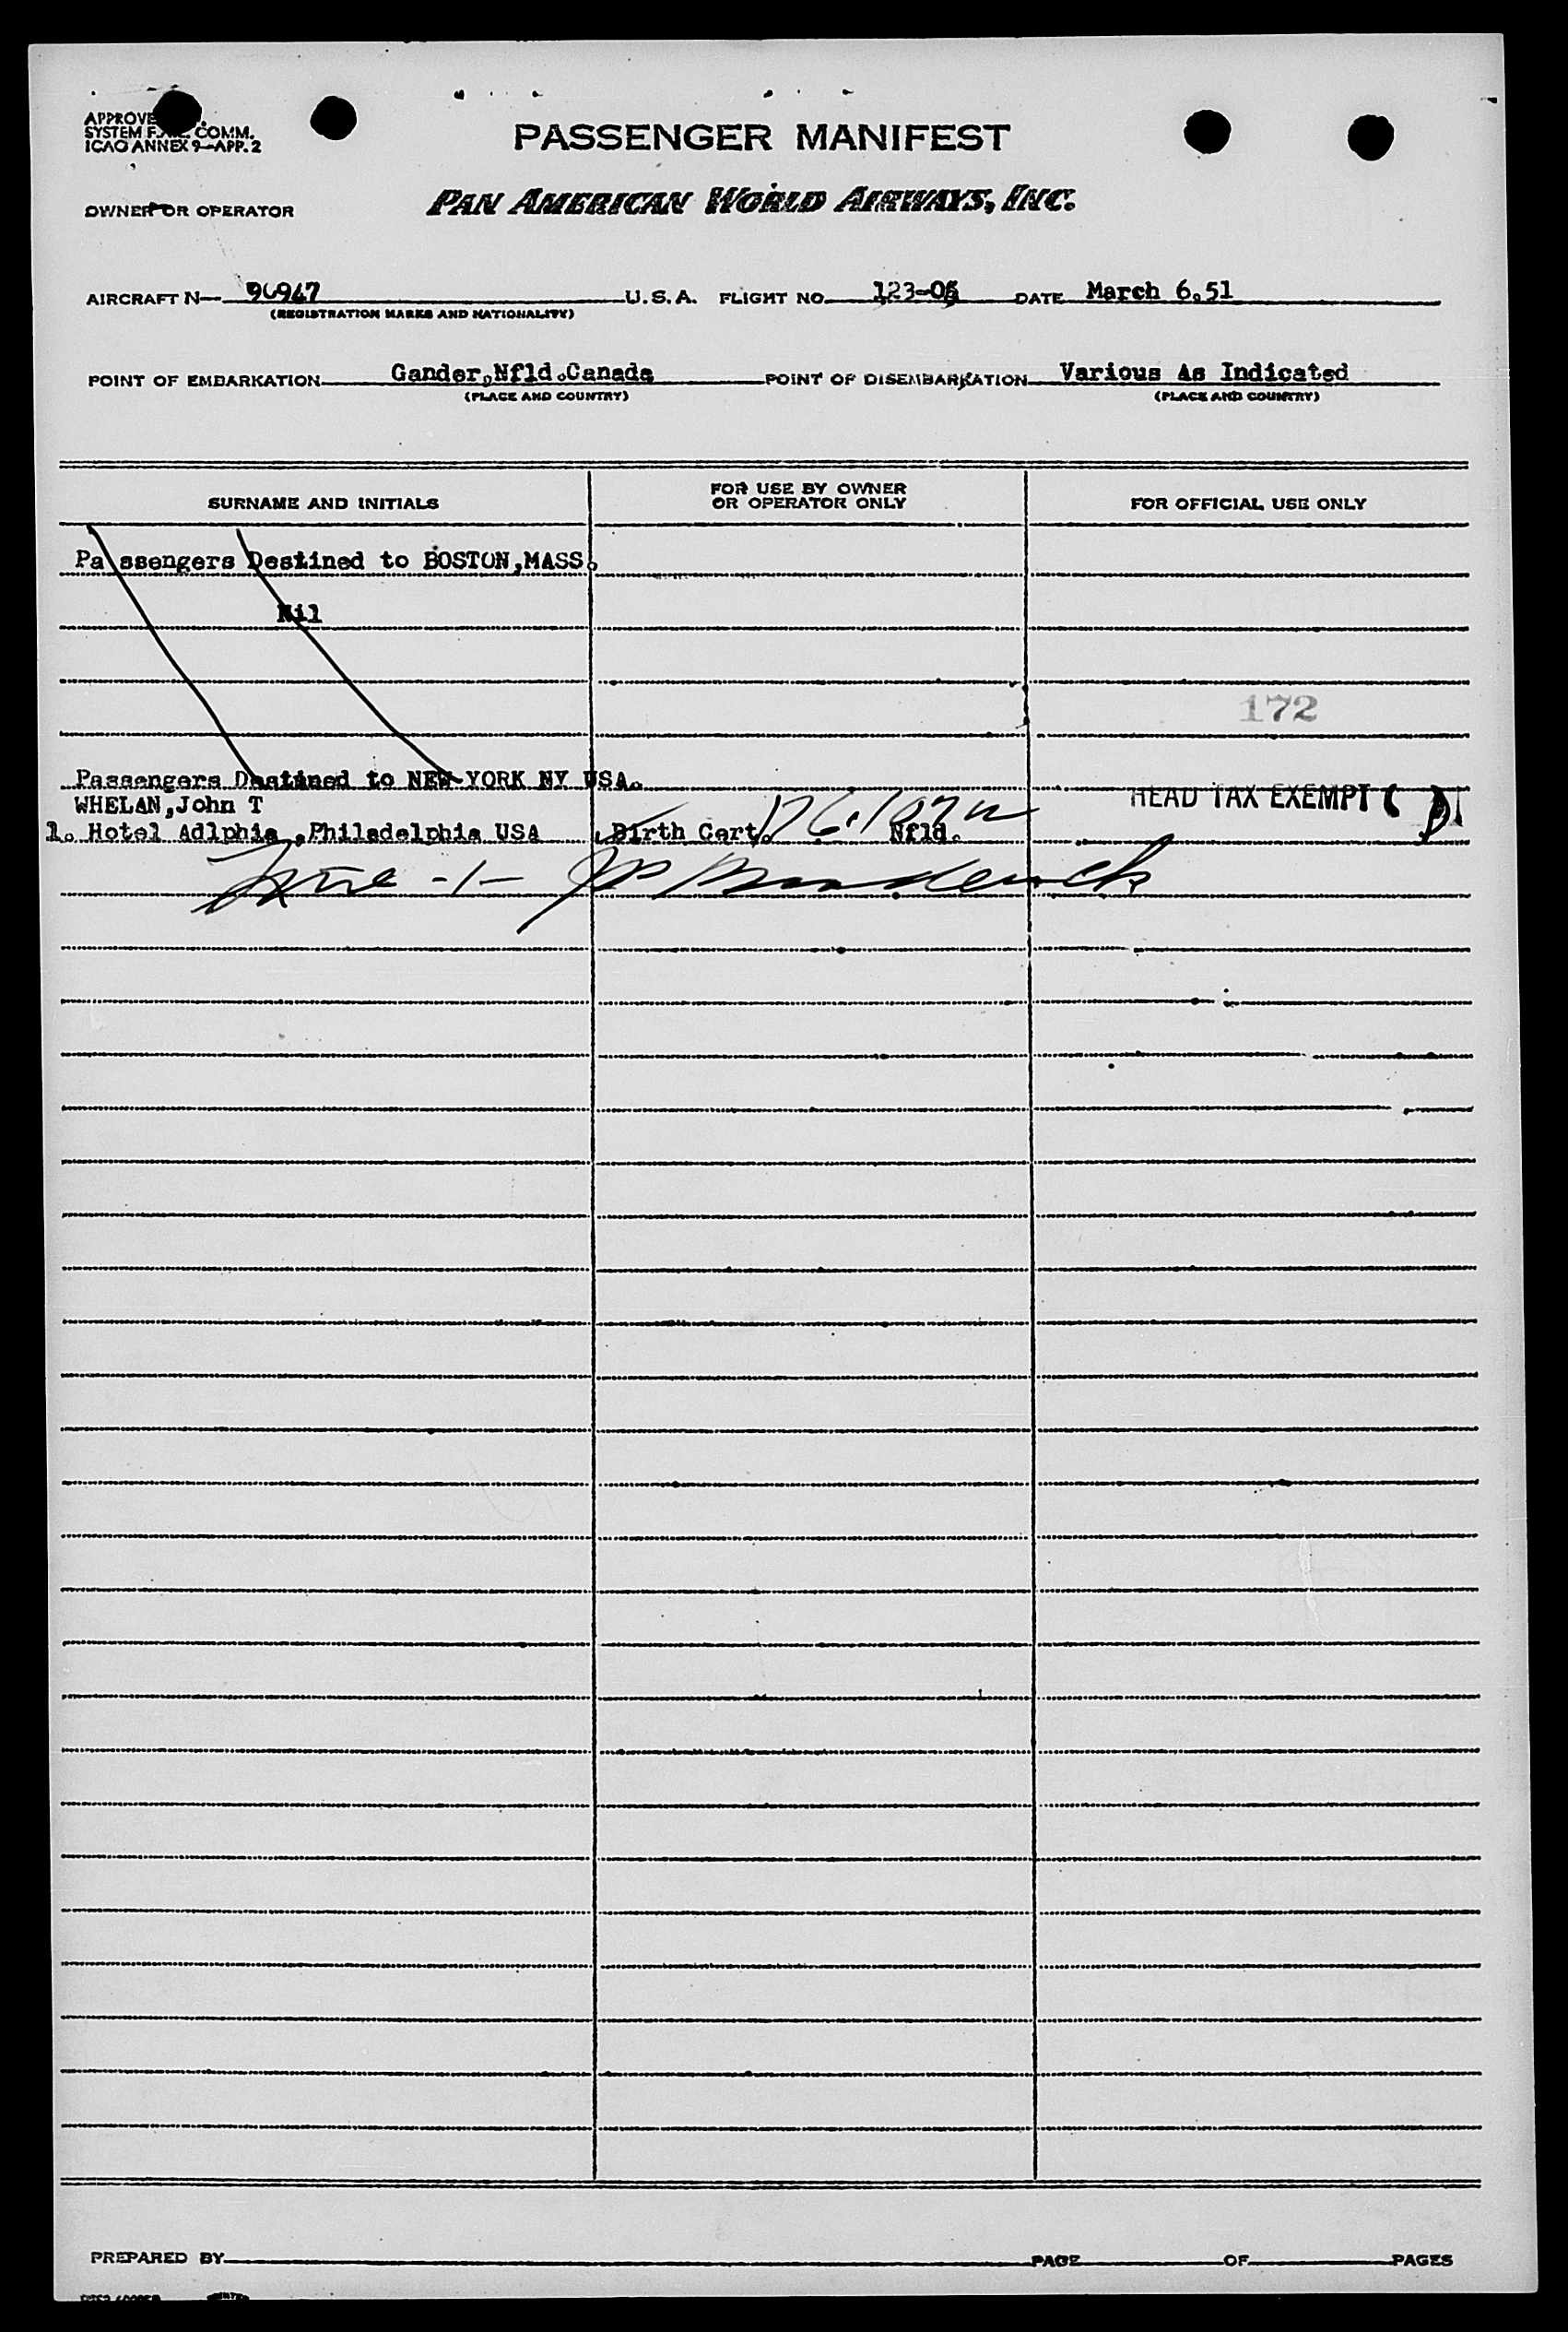 PASSENGER MANIFEST
SYSTEM F.A.L. COMM.
ICAO ANNEX 9—APP. 2
OWNER OR OPERATOR PAN AMERICAN WORLD AIRWAYS, INC.
AIRCRAFT N— 90947 U.S.A. FLIGHT NO. 123-05 DATE March 6.51
(REGISTRATION MARKS AND NATIONALITY)
POINT OF EMBARKATION Gander,Nfld.Canada POINT OF DISEMBARKATION Various As Indicated
(PLACE AND COUNTRY) (PLACE AND COUNTRY)
SURNAME AND INITIALS FOR USE BY OWNER OR OPERATOR ONLY FOR OFFICIAL USE ONLY
Passengers Destined to BOSTON,MASS.
Nil
172
Passengers Destined to NEW YORK NY USA.
WHELAN,John T HEAD TAX EXEMPT
1. Hotel Adlphia ,Philadelphia USA Birth Cert. Nfld.
PREPARED BY PAGE OF PAGES